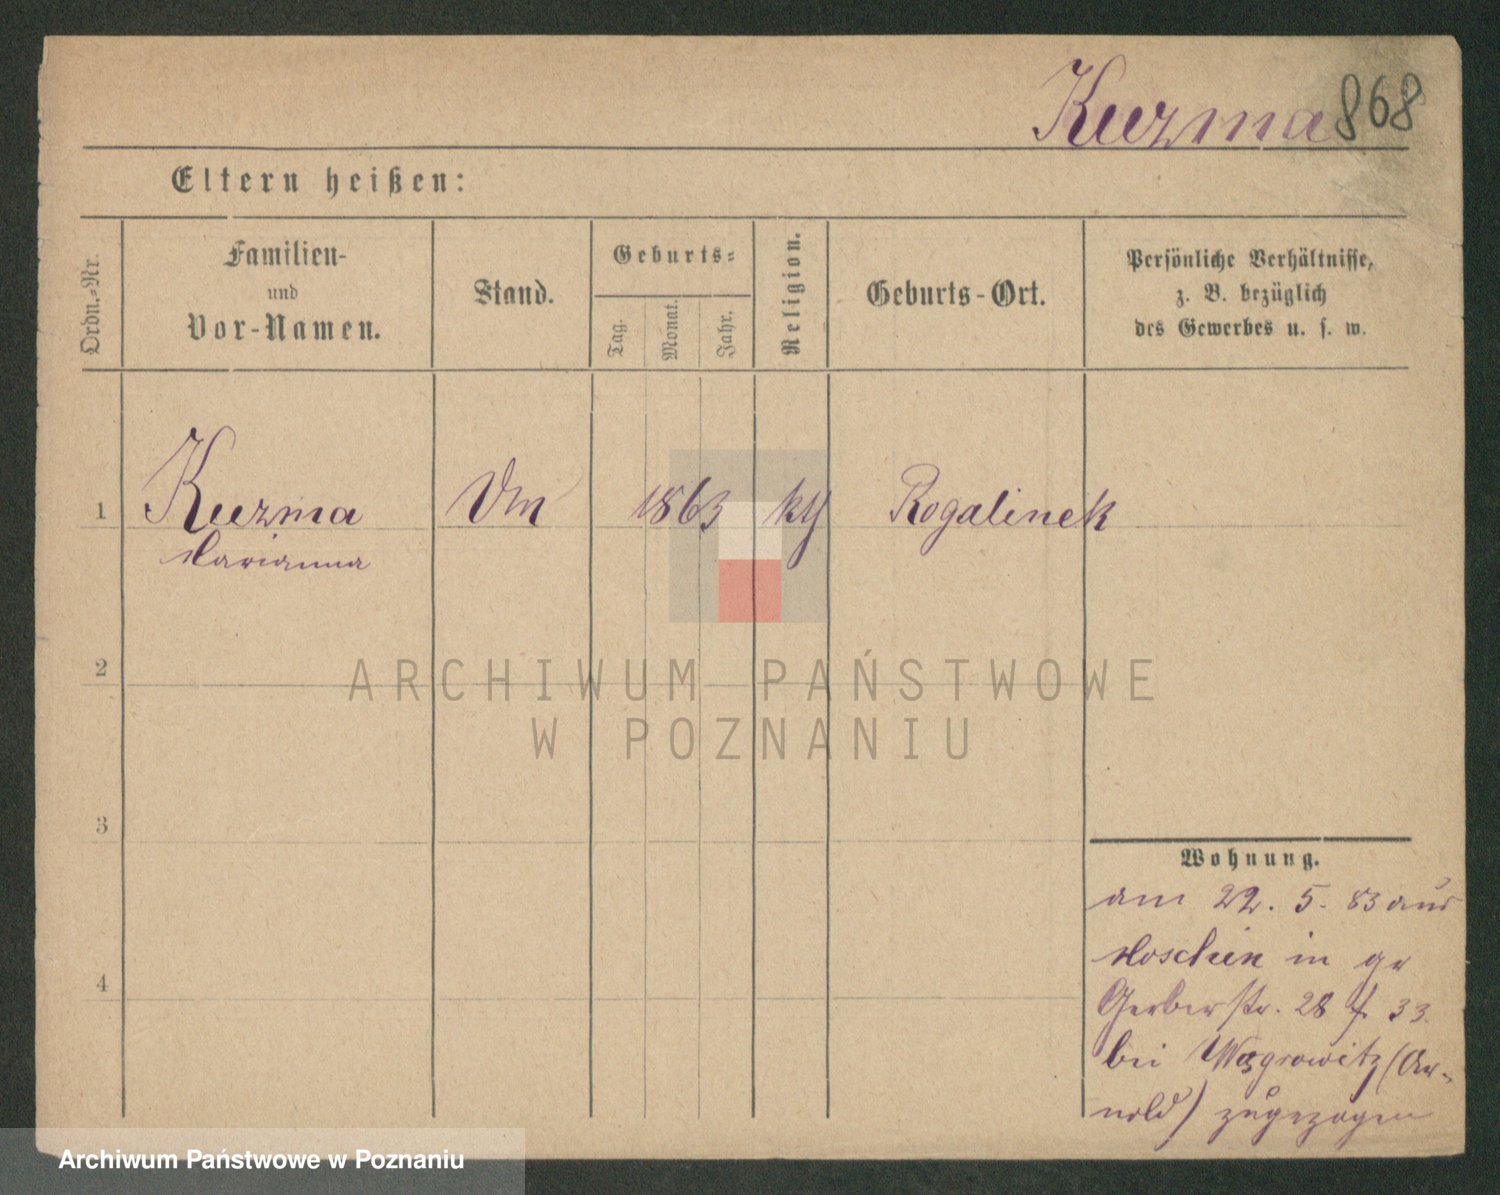 Kuzma 868
Eltern heißen:
Ordn.-Nr.
Familien-
und
Vor-Namen.
Stand.
Geburts-
Tag.
Monat.
Jahr.
Religion.
Geburts-Ort.
Persönliche Verhältnisse,
z. B. bezüglich
des Gewerbes u. s. w.
1 Kuzma 1863 Rogalinek
Marianna
2
ARCHIWUM PAŃSTWOWE
W POZNANIU
3
4
Wohnung.
am 22. 5. 83 aus
Moschin in gr
Gerberstr. 28 f. 33.
bei Wagrowitz (Ar-
nold) zugezogen
Archiwum Państwowe w Poznaniu